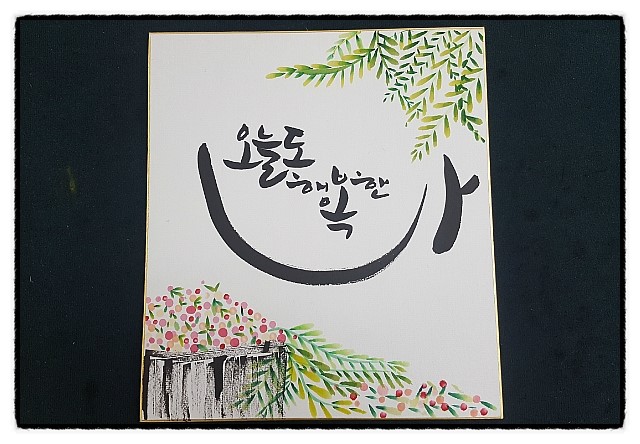 오늘도
행복한
나